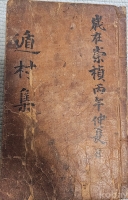 歲在崇禎丙午仲
遁村集